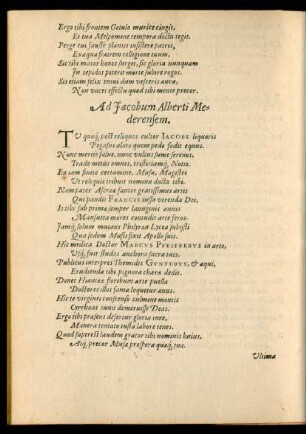 Ergo tibi frontem Getulo murice cingit,
Et tua Melpomene tempora docta tegit.
Perge tui fausto plantis insistere patris,
Exæqua fratrem religione tuum.
Sic tibi maior honos surget, sic gloria nunquam
In tepidos poterit morte subire rogos.
Sic etiam felix trans dum vesceris aura,
Non vacet effectu quod tibi mente precor.
Ad Jacobum Alberti Me-
derensem.
TU quoq́, pact religiosi cultor IACOBE liquoris
Pegaseo alata quem pede fodit equus.
Nunc merito salue, nunc vultus sume serenos,
Trade metus omnes, tristitiamq́, Notis.
En sum functe certamine, Musæ, Magistri
Ut reliquis tribuet nomina docta tibi.
Nam pater Ascreæ fautor gratissimus artis
Qui pandit FRANCIS iussa verenda Dei,
Is tibi sub prima semper lanugine annis
Mansueta mores condidit arte feros.
Jamq́, solum mutans Philyrea Lycea subisti
Qua sedem Musis fixit Apollo suis.
Hic medica Doctor MARCUS PFEIFFERUS in arte,
Usq́, fuit studiis anchora sacra tuis.
Publicus interpres Themidis GUNTERUS, & æqui,
Erudienda tibi pignora chara dedit.
Donec Hiantææ florebunt arte puellæ
Doctores illos fama loquetur anus.
Hic te virgineo consensu culmine montis
Cyrrhææ iunus demeruisse Deas.
Ergo tibi præsens desertur gloria curæ,
Munera tentato iusta labore tenes.
Quod superest laudem gratæ tibi nominis haius,
Atq́, precor Musæ prospera quæq́, tuæ.
Ultima